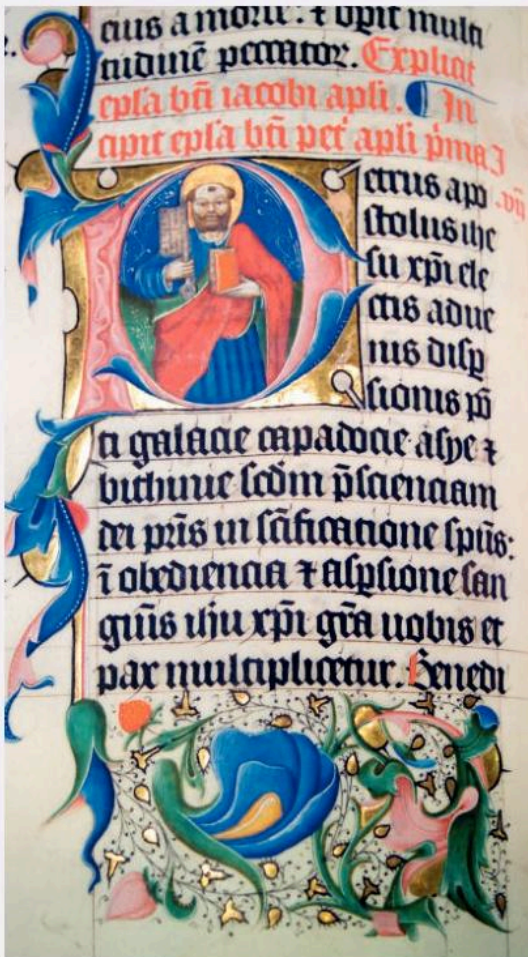 eius a morte: ⁊ opit multi
tudinē peccator. Explicit
epl̄a bt̄i iacobi apl̄i. In
cipit epl̄a bt̄i pet᷒ apl̄i p̄ma J
Petrus apo .vij
stolus ihe
su xp̄i ele
ctis adue
nis disp̄
sionis pō
ti galacie capadocie asye ⁊
bithinie scd̄m p̄scienciam
dei pr̄is in sc̄ificatione spūs:
ī obediencia ⁊ asp̄sione san
guīs ih̄u xp̄i gr̄a uobis et
pax multiplicetur. Benedi